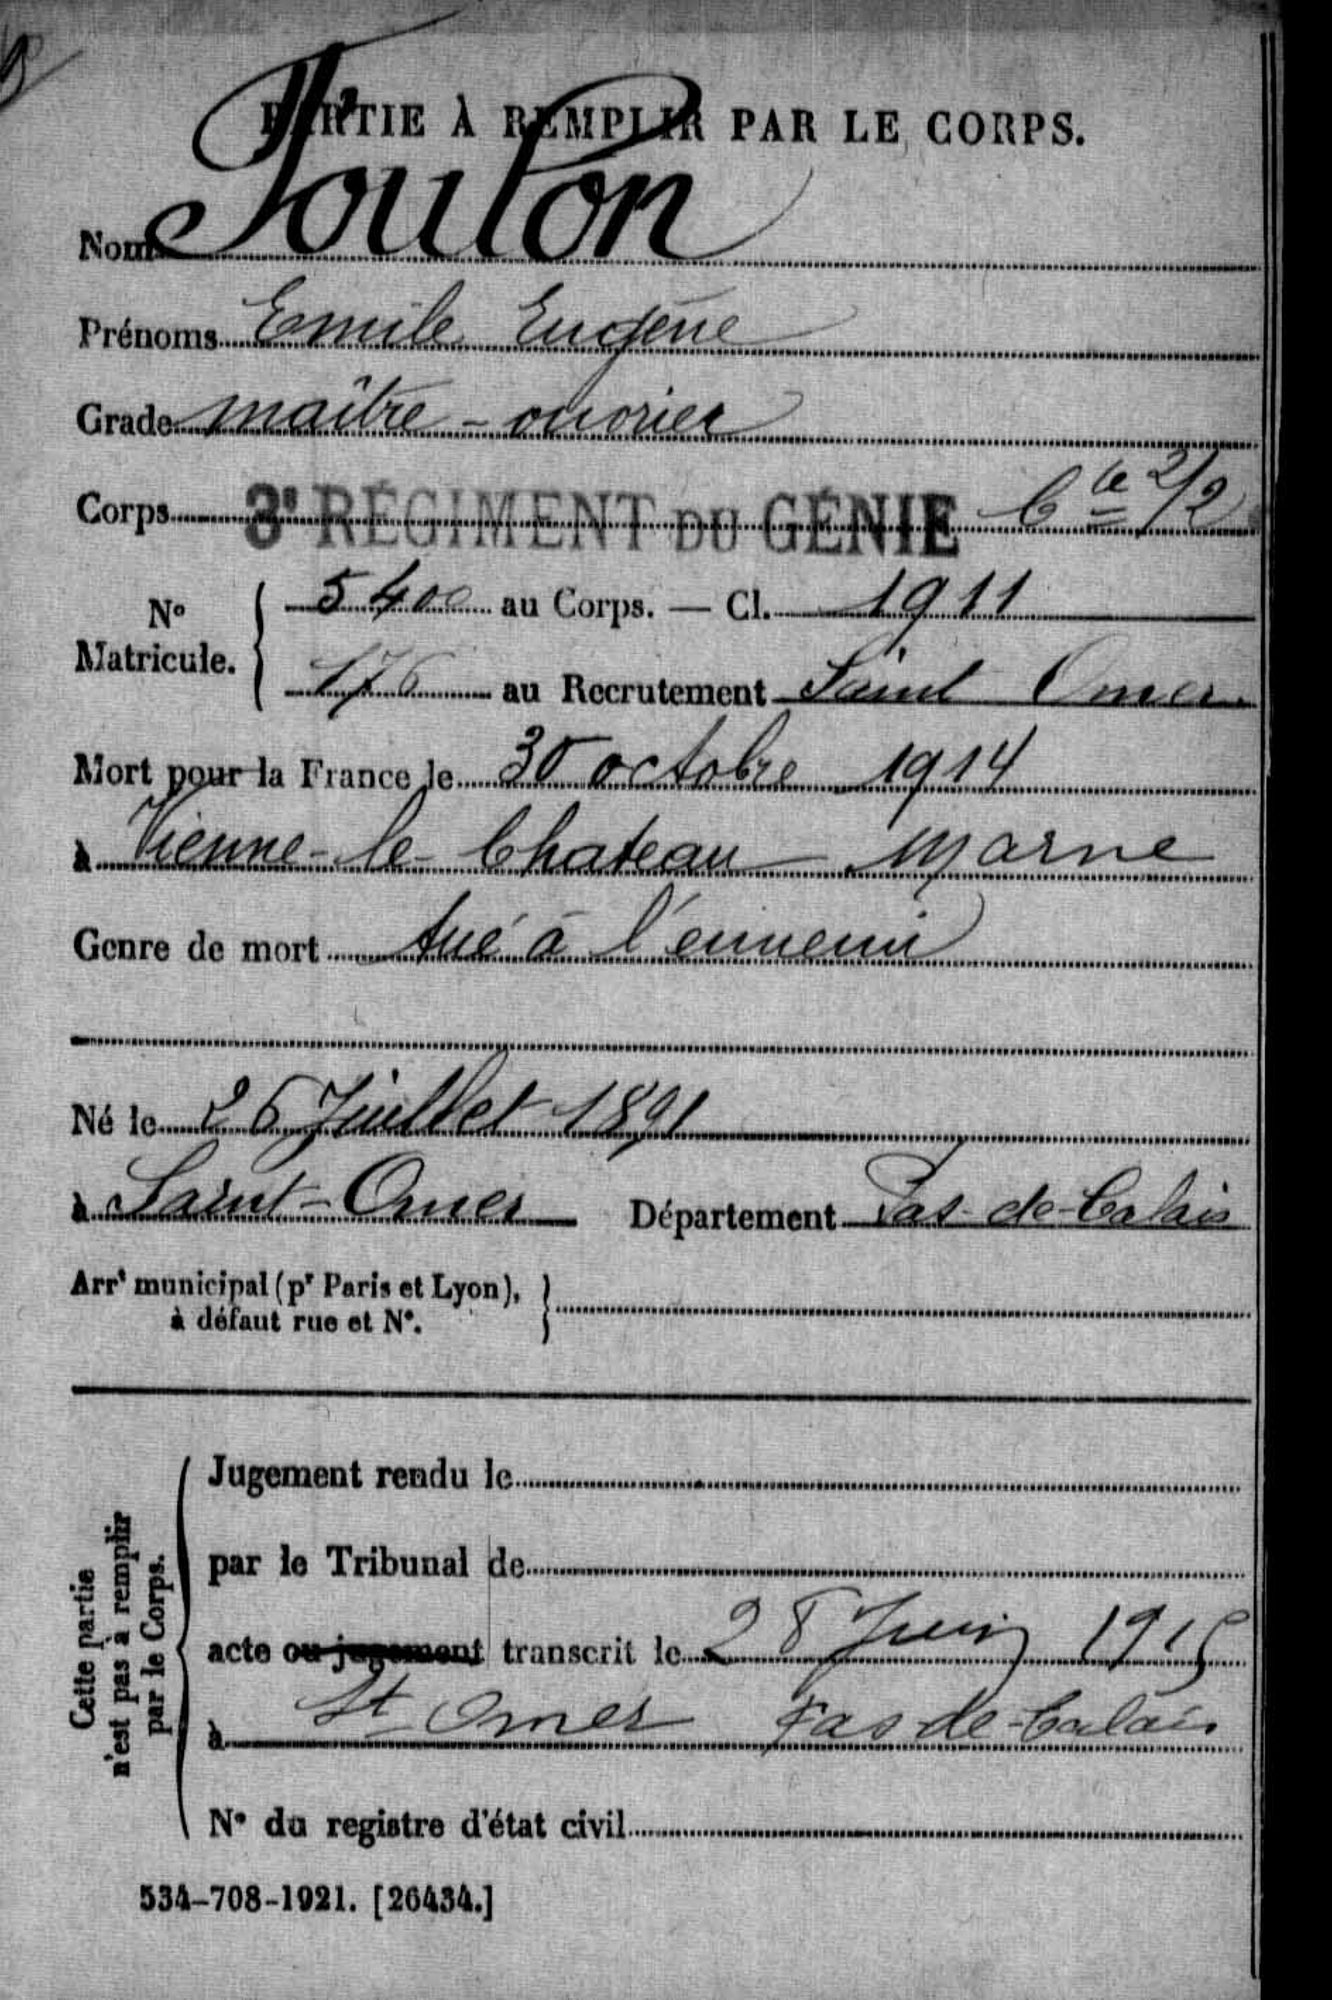 PARTIE À REMPLIR PAR LE CORPS.
Nom Foulon
Prénoms Emile Eugène
Grade maître-ouvrier
Corps 3e RÉGIMENT DU GÉNIE Cie 2/2
No Matricule. { 5400 au Corps. — Cl. 1911
176 au Recrutement Saint Omer.
Mort pour la France le 30 octobre 1914
à Vienne-le-Chateau Marne
Genre de mort tué à l'ennemi
Né le 26 Juillet 1891
à Saint-Omer Département Pas-de-Calais
Arrt municipal (pr Paris et Lyon), }
à défaut rue et No.
Cette partie
n'est pas à remplir
par le Corps.
Jugement rendu le
par le Tribunal de
acte ou jugement transcrit le 28 Juin 1915
à St Omer Pas de-Calais
No du registre d'état civil
534-708-1921. [26434.]